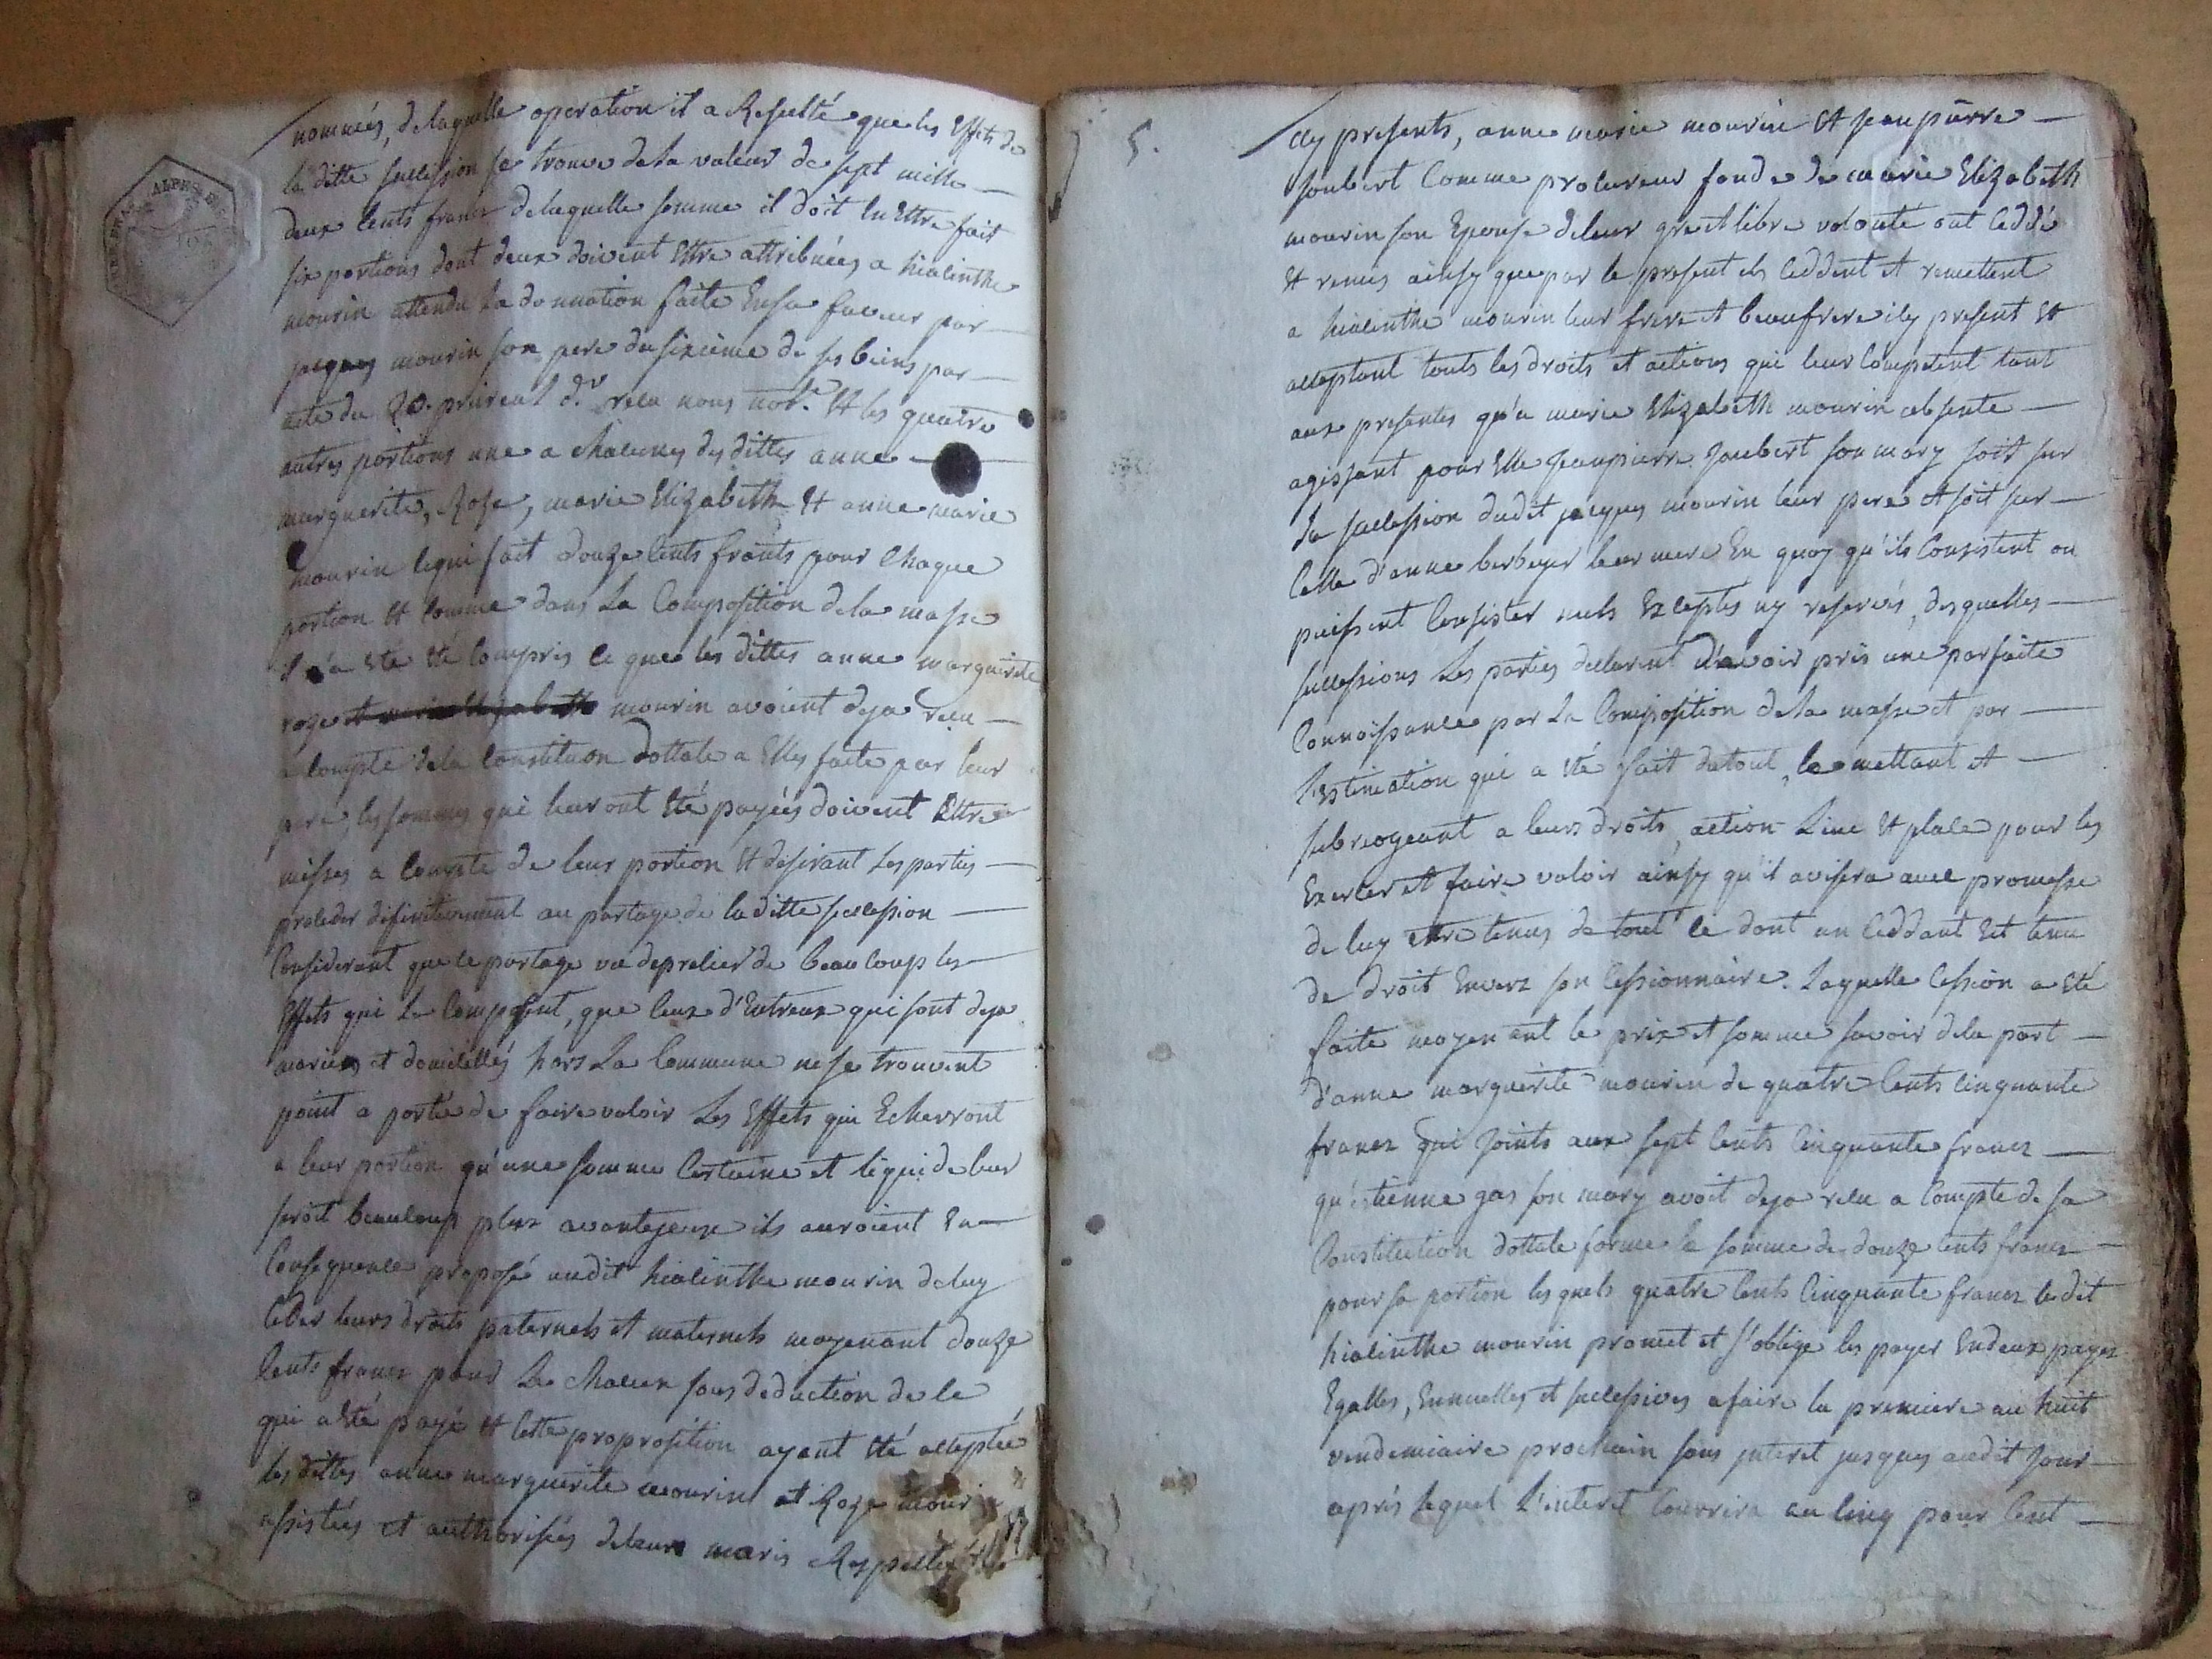 ALPES
nommées, delaquelle operation il a Resulté que les Effets de
la ditte succession se trouve dela valeur de sept mille
deux cents francz delaquelle somme il doit en Ettre fait
six portions dont deux doivent Ettre attribuées a hialinthe
mourin attendu la donnation faite Ensa faveur par
jacques mourin son pere du sixieme de ses biens par
acte du 20. praireal d.r recu nous not.e Et les quatre
autres portions une a chacunes des dittes anne
marguerite, Rose, marie Elizabeth Et anne marie
mourin cequi fait douze cents frants pour Chaque
portion Et comme dans La Composition dela masse
il n'a ete eté compris ce que les dittes anne marguerite
roze mourin avoient deja recu
a compte dela constituon dottale a Elles faite par leur
pere, les sommes qui leur ont Eté payées doivent Ettre
misses a compte de leur portion Et desirant Les parties
proceder difinitivement au partage de la ditte succession
Considerant que le partage va deprecier de beaucoup les
Effets qui La composent, que ceux d'Entreux qui sont deja
mariés et domicillés hors La Commune ne se trouvent
point a porté de faire valoir Les Effets qui Echerront
a leur portion qu'une somme Certaine et liquide leur
seroit beaucoup plus avantejeux ils auroient En
Consequence proposé audit hialinthe mourin deluy
Ceder leurs droits paternels et maternels moyenant douze
Cents francz pour Le chacun sous deduction de ce
qui a Eté payé Et Cette proprosition ayant Eté acceptée
les dittes anne marguerite mourin et Roze mourin
assistées et authorisées deleurs maris Respectifs
5.
icy presents, anne marie mourin Et jean pierre
joubert Comme procureur fondé de marie Elizabeth
mourin son Epouse deleur gré et libre volonté ont Ceddé
Et remis ainsy que par le present ils Ceddent et remettent
a hialinthe mourin leur frere et beaufrere icy present Et
acceptant touts les droits et actions qui leur competent tant
aux presentes qu'a marie Elizabeth mourin absente
agissant pour Elle jeanpierre joubert son mary soit sur
La succession dudit jacques mourin leur pere et soit sur
Celle d'anne berbeyer leur mere En quoy qu'ils Consistent ou
puissent Consister nuls Exceptés ny reservés, desquelles
successions Les parties declarent d'avoir pris une parfaite
Connoissance par La Composition dela masse et par
L'Estimation qui a Eté fait dutout, le mettant et
subrrogeant a leurs droits, action Lieu Et place pour les
Exercer et faire valoir ainsy qu'il avisera avec promesse
de luy ettre tenus de tout ce dont un Ceddant Est tenu
de droit Enverz son Cessionnaire. Laquelle Cession a Eté
faite moyenent le prix et somme savoir dela part
d'anne marguerite mourin de quatre Cents Cinquante
francz qui joints aux sept Cents Cinquante francz
qu'etienne gas son mary avoit deja recu a Compte de sa
Constitution dottale forme la somme de douze cents francz
pour sa portion les quels quatre Cents Cinquante francz ledit
hialinthe mourin promet et s'oblige les payer Endeux payes
Egalles, Ennuelles et successives a faire la premiere au huit
vendemiaire prochain sans interet jusques audit jour
aprés lequel L'interet Courrira au Cinq pour Cent